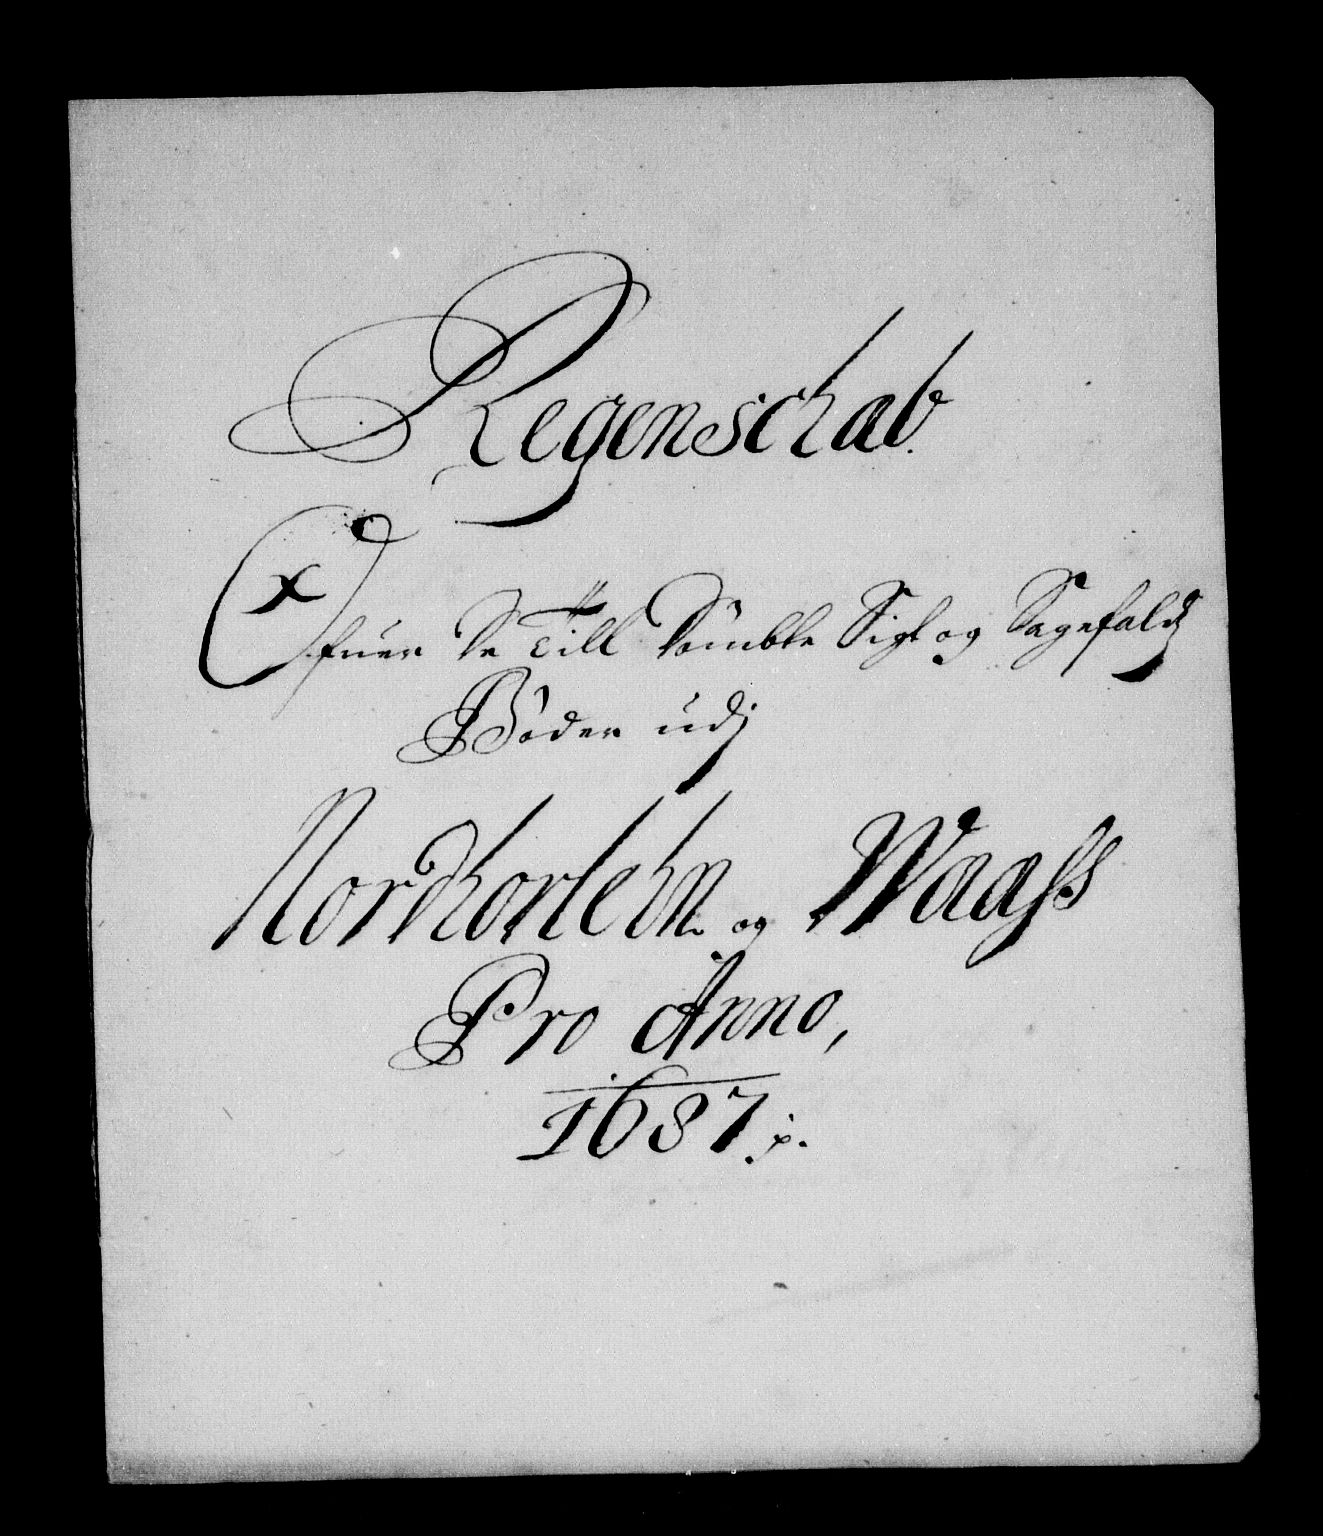 Regenschab
Ofuer De Till Dömbte Sigt og Sagefalds
Böder udj
Nordhorlehn og Waass
Pro Anno,
1687